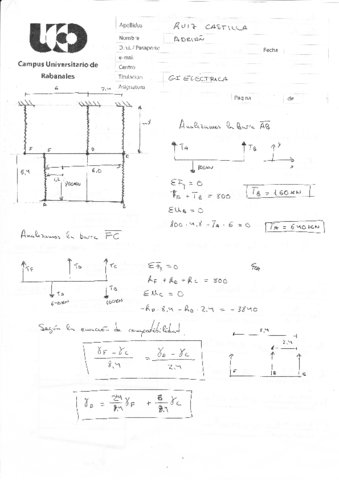 UCO
Campus Universitario de
Rabanales
Apellidos RUIZ CASTILLA
Nombre ADRIÁN
D.N.I./ Pasaporte Fecha
e-mail
Centro
Titulación GI ELÉCTRICA
Asignatura
Página de
6 2,4
Analizamos la barra AB
TA TB
800KN
ΣFy = 0
TA + TB = 800 TB = 160KN
ΣMB = 0
800·4,8 - TA·6 = 0 TA = 640KN
F D C
2,4 1,2 6,0
800KN
A B
Analizamos la barra FC
TF TD TC
TA TB
640KN 160KN
ΣFy = 0
RF + RD + RC = 800
ΣMC = 0
-RF·8,4 - RD·2,4 = -3840
Según la ecuación de compatibilidad:
γF - γC / 8,4 = γD - γC / 2,4
8,4
2,4
γD = 2,4/8,4 γF + 6/8,4 γC